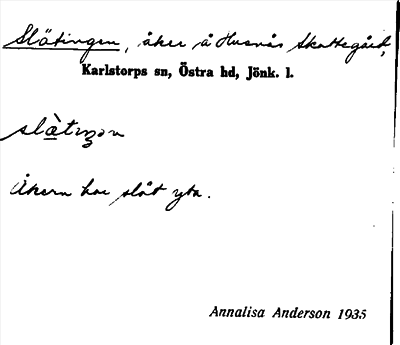 Slätingen, åker å Husnäs Skattegård,
Karlstorps sn, Östra hd, Jönk. l.
slä̀tiŋən
Åkern har slät yta.
Annalisa Anderson 1935